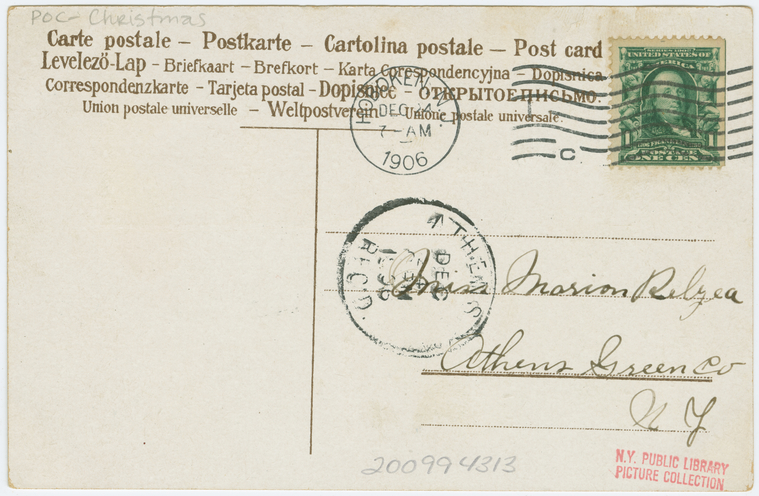 POC- Christmas
Carte postale – Postkarte – Cartolina postale – Post card
Levelező-Lap – Briefkaart – Brefkort – Karta Corespondencyjna – Dopisnica
Correspondenzkarte – Tarjeta postal – Dopisnieć – ОТКРЫТОЕ ПИСЬМО.
Union postale universelle – Weltpostverein – Unione postale universale.
HOBOKEN, N.J.
DEC 24
7 – AM
1906
C
SERIES 1902
UNITED STATES OF
AMERICA
POSTAGE
ONE CENT
ATHENS
DEC
1906
REC'D.
Miss Marion Relyea
Athens Green Co
N Y
200994313
N.Y. PUBLIC LIBRARY
PICTURE COLLECTION